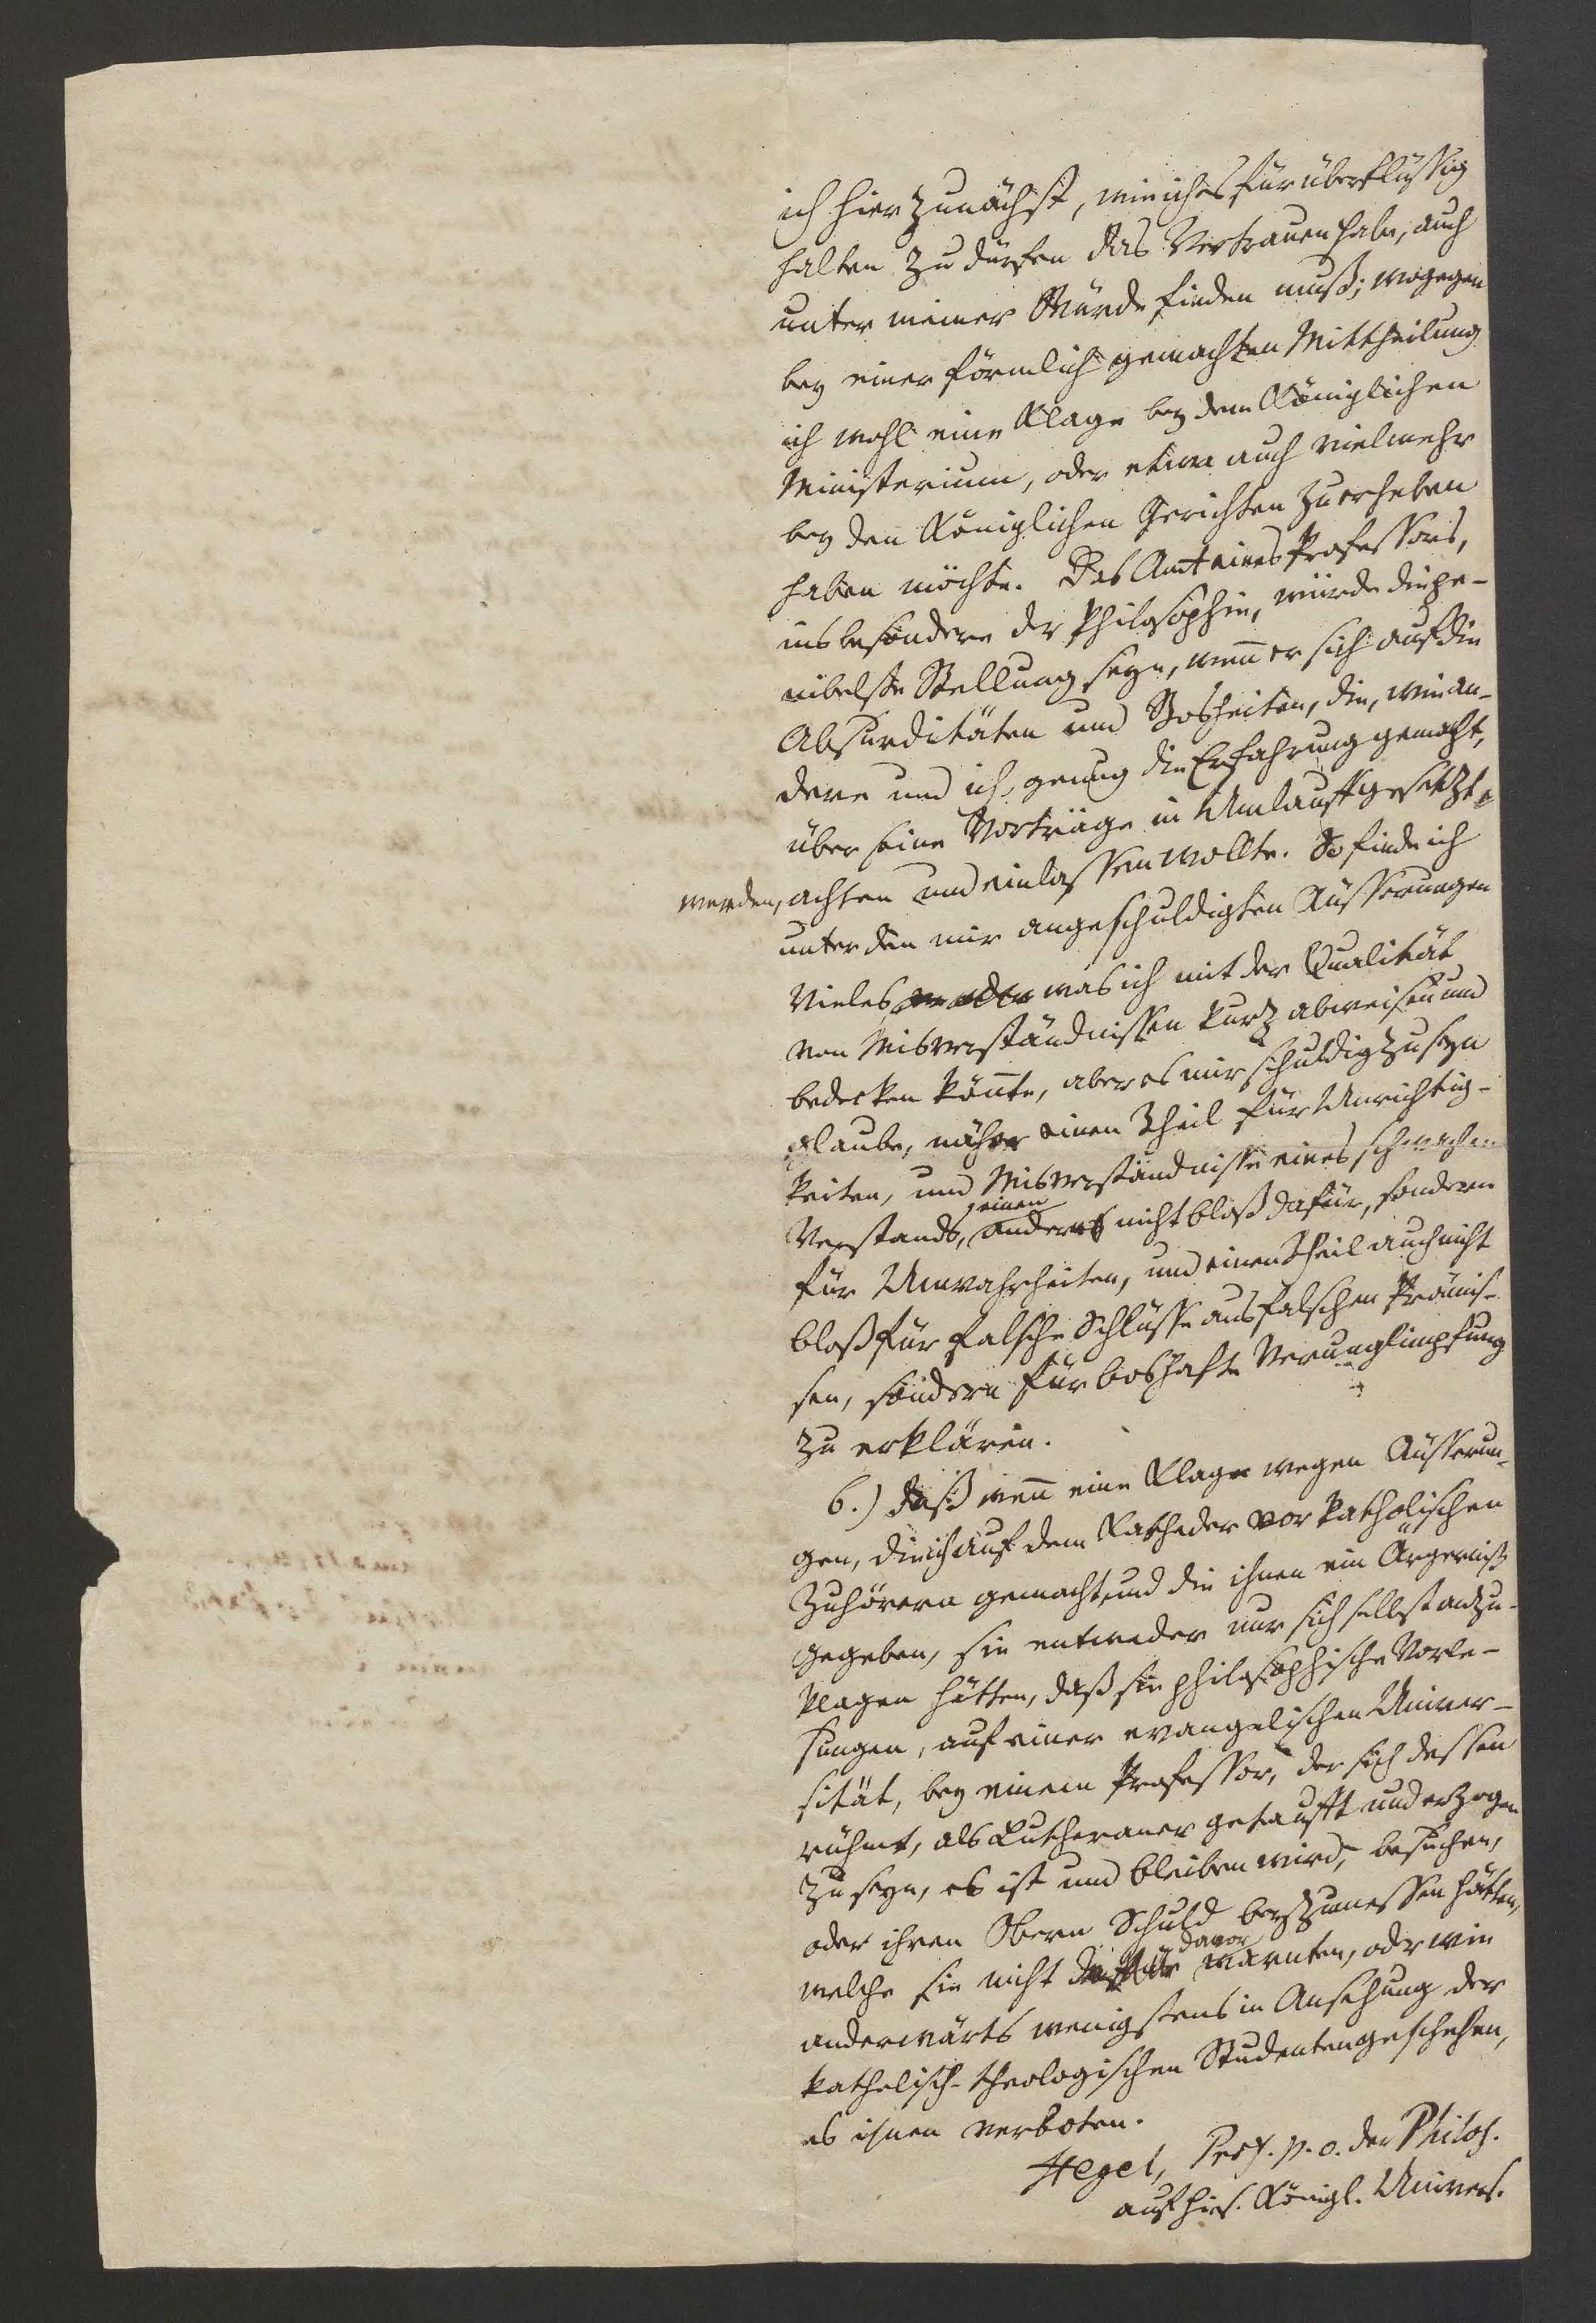 ich hier zunächst, wie ich es für überflüssig
halten zu dürfen das Vertrauen habe, auch
unter meiner Würde finden muß; wogegen
bey einer förmlich gemachten Mittheilung
ich wohl eine Klage bey dem Königlichen
Ministerium, oder etwa auch vielmehr
bey den Königlichen Gerichten zu erheben
haben möchte. Das Amt eines Professors,
insbesondere der Philosophie, würde die pe-
nibelste Stellung seyn, wenn er sich auf die
Absurditäten und Bosheiten, die, wie an-
dere und ich, genug die Erfahrung gemacht,
über seine Vorträge in Umlauff gesetzt
werden, achten und einlassen wollte. So finde ich
unter den mir angeschuldigten Äusserungen
Vieles was ich mit der Qualität
von Misverständnissen kurz abweisen und
bedecken könnte, aber es mir schuldig zu seyn
glaube, näher einen Theil für Unrichtig-
keiten, und Misverständnisse eines schwachen
Verstands, einen andern nicht bloß dafür, sondern
für Unwahrheiten, und einen Theil auch nicht
bloß für falsche Schlüsse aus falschen Prämis-
sen, sondern für boshafte Verunglimpfung
zu erklären.
6.) daß wenn eine Klage wegen Äusserun-
gen, die ich auf dem Katheder vor katholischen
Zuhörern gemacht, und die ihnen ein Ärgerniß
gegeben, sie entweder nur sich selbst anzu-
klagen hätten, daß sie philosophische Vorle-
sungen, auf einer evangelischen Univer-
sität, bey einem Professor, der sich dessen
rühmt, als Lutheraner getaufft und erzogen
zu seyn, es ist und bleiben wird, besuchen,
oder ihren Obern Schuld beyzumessen hätten,
welche sie nicht davor warnten, oder wie
anderwärts wenigstens in Ansehung der
katholisch-theologischen Studenten geschehen,
es ihnen verboten.
Hegel, Prof. p. o. der Philos.
auf hies. Königl. Univers.